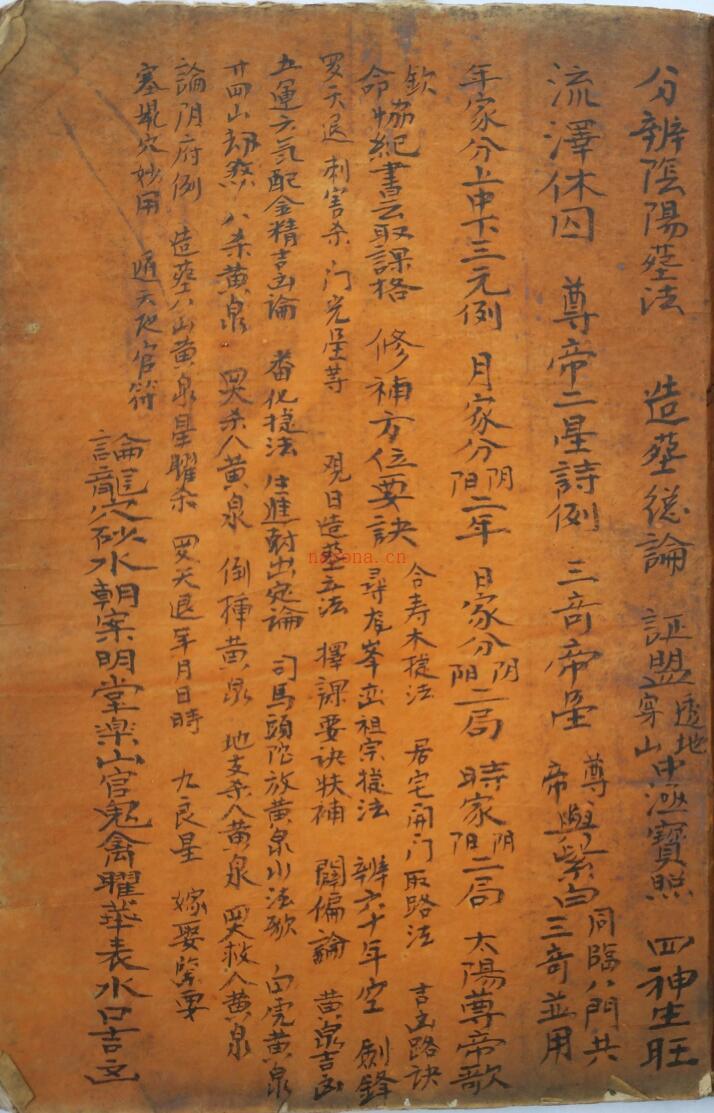 分辨陰陽塟法 造塟總論 証盟透地穿山中逥寶照 四神生旺
流澤休囚 尊帝二星詩例 三奇帝星 尊帝與紫白三奇並用 同臨八門共
年家分上中下三元例 月家分阴阳二年 日家分阴阳二局 時家阴阳二局 太陽尊帝歌
欽命協紀書云取課格 修補方位要訣 合寿木提法 居宅開门取路法 吉凶路訣
尋龙峯峦祖宗提法 辨六十年空 劍鋒
罗天退 刺害杀 门光星等 观日造塟立法 擇課要诀扶補 闢偏論 黄泉吉凶
五運六氣配金精吉凶論 番化提法 生進尅出定論 司馬頭陀放黄泉水法歌 白虎黄泉
廿四山刼煞 八杀黄泉 四杀八黄泉 倒排黄泉 地支杀八黄泉 四救八黄泉
論阴府例 造塟八山黄泉星曜杀 罗天退年月日時 九良星 嫁娶緊要
塞鼠穴妙用 通天地官符
論龍穴砂水朝案明堂楽山官鬼禽曜華表水口吉凶
nayona.cn